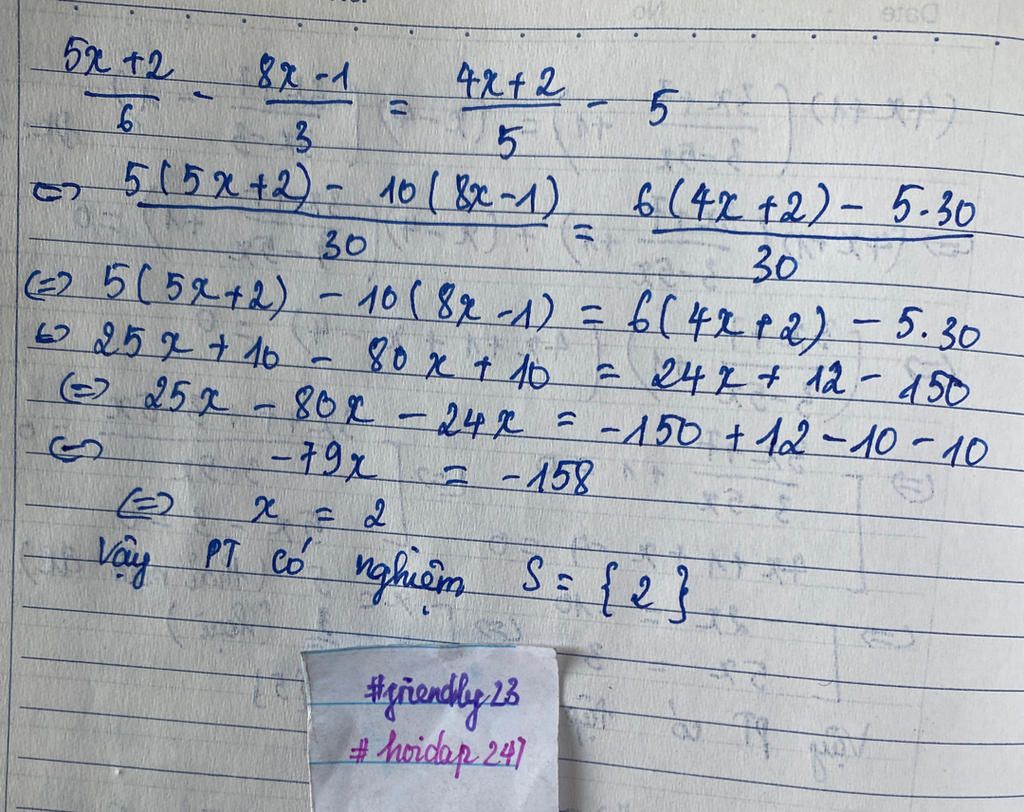 (5x+2)/6 - (8x-1)/3 = (4x+2)/5 - 5
⇔ (5(5x+2) - 10(8x-1))/30 = (6(4x+2) - 5.30)/30
⇔ 5(5x+2) - 10(8x-1) = 6(4x+2) - 5.30
⇔ 25x + 10 - 80x + 10 = 24x + 12 - 150
⇔ 25x - 80x - 24x = -150 + 12 - 10 - 10
⇔ -79x = -158
⇔ x = 2
Vậy PT có nghiệm S = {2}
#friendly23
#hoidap247